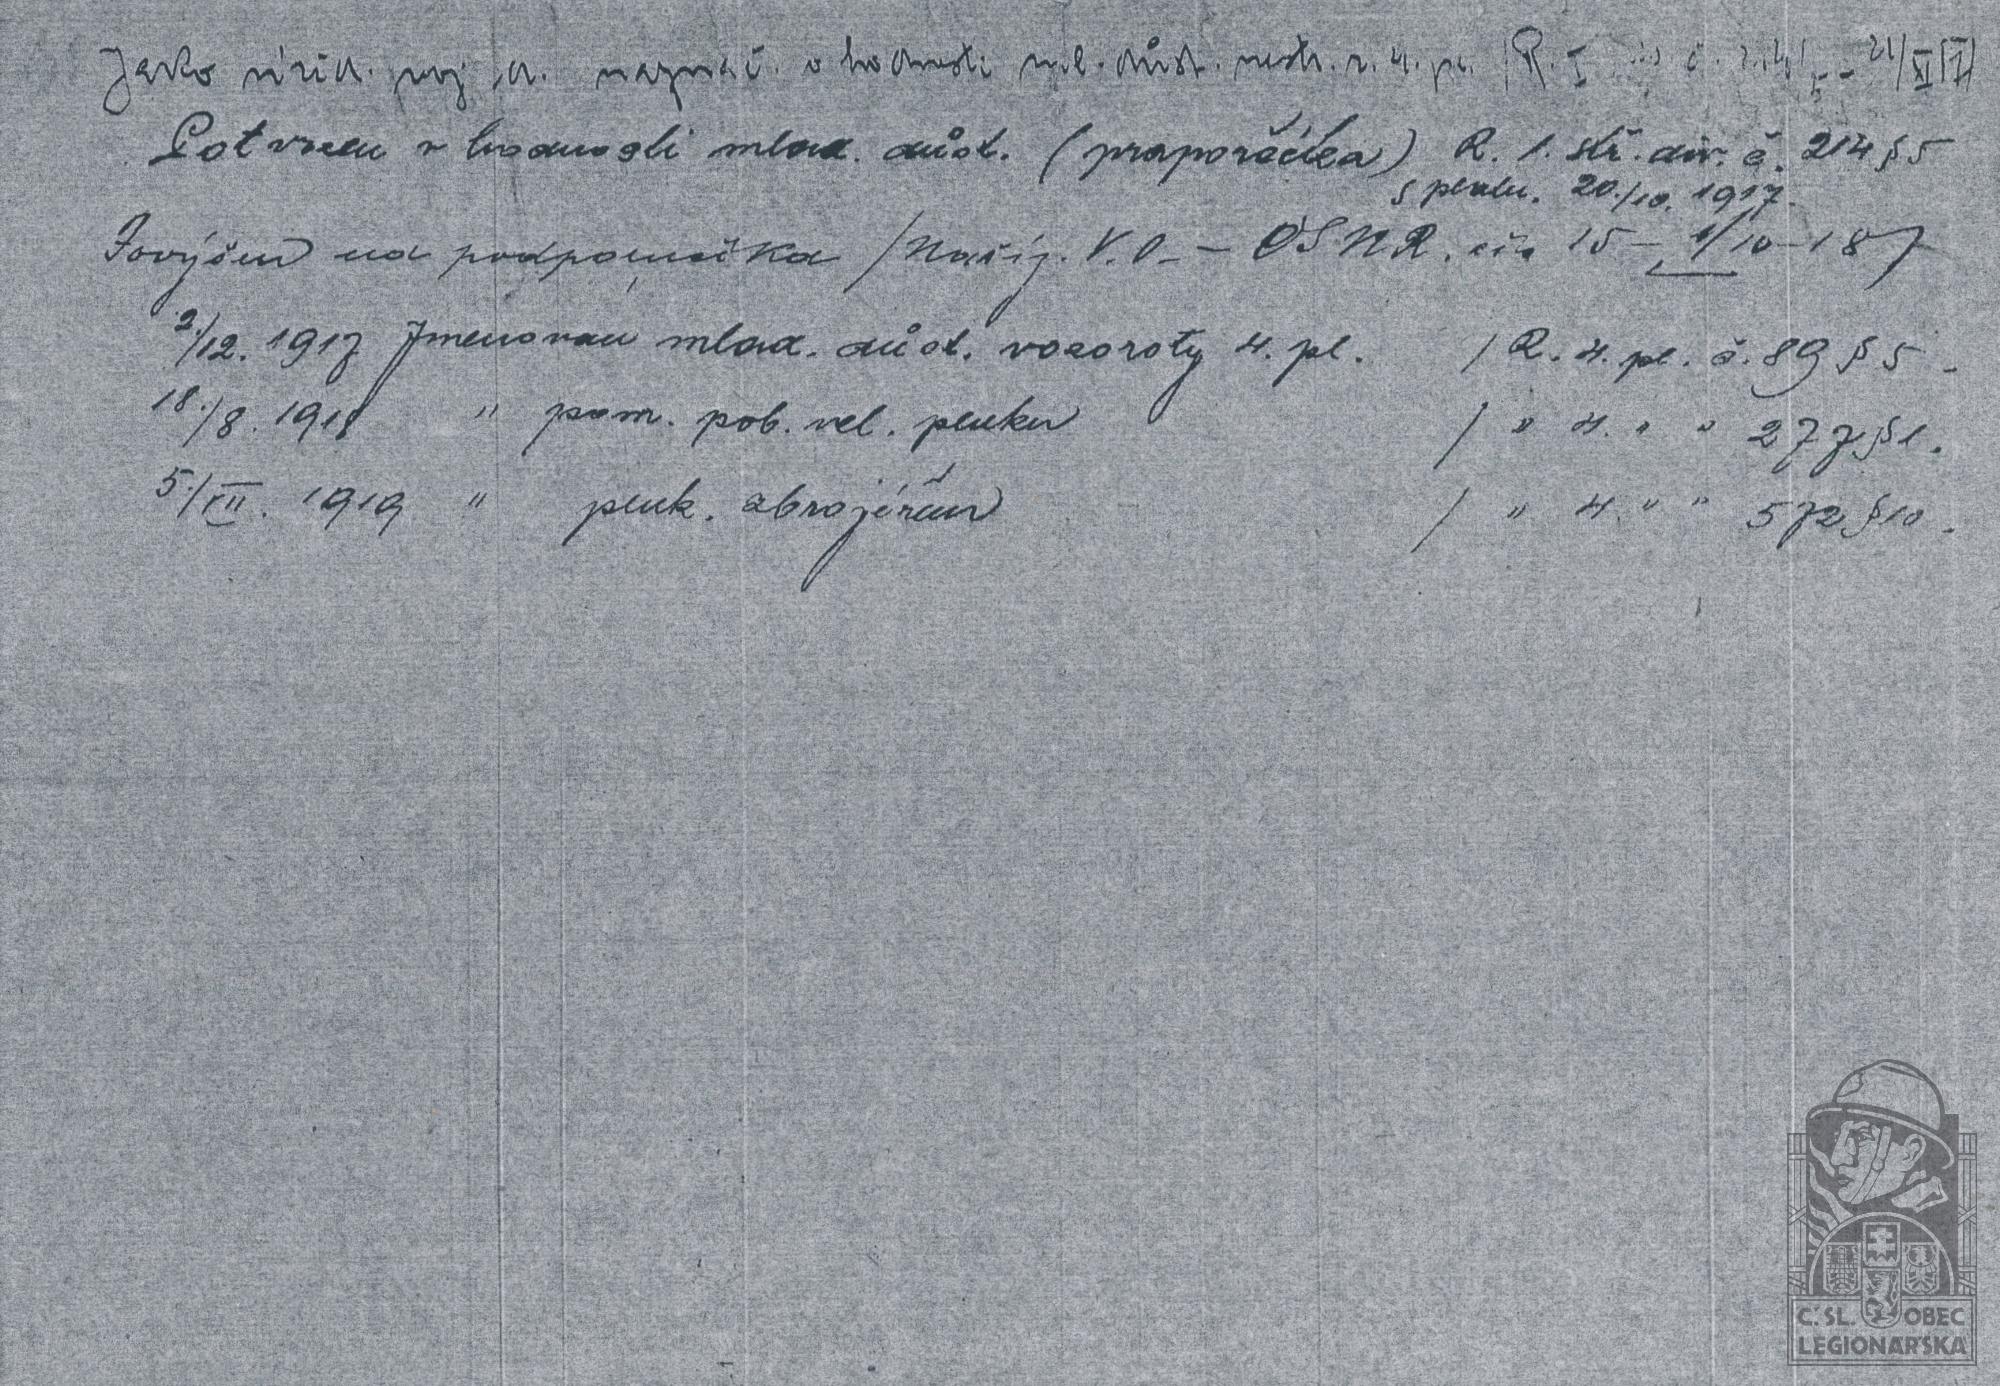 Jako úřed. voj. naznač. v hodnosti ml. důst. nestr. r. 4. pl. / R. I č. 21/XI
Potvrzen v hodnosti mlad. důst. (praporčíka) R. 1. stř. div. č. 214 § 5
s platn. 20./10. 1917.
Povýšen na podporučíka / V. O. – OČSNR. čís. 15 – 1/10 – 18
2./12. 1917 Jmenovan mlad. důst. vozoroty 4. pl. / R. 4. pl. č. 89 § 5 -
18./8. 1918 " pom. pob. vel. pluku / " 4. " " 277 § 1.
5./XII. 1919 " pluk. zbrojířem / " 4. " " 572 § 10.
Č. SL. OBEC
LEGIONÁŘSKÁ